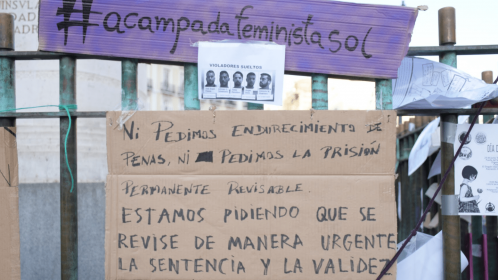 #acampadafeministasol
VIOLADORES SUELTOS
Ni PEDIMOS ENDURECIMIENTO DE
PENAS, NI PEDIMOS LA PRISIÓN
PERMANENTE REVISABLE.
ESTAMOS PIDIENDO QUE SE
REVISE DE MANERA URGENTE
LA SENTENCIA Y LA VALIDEZ